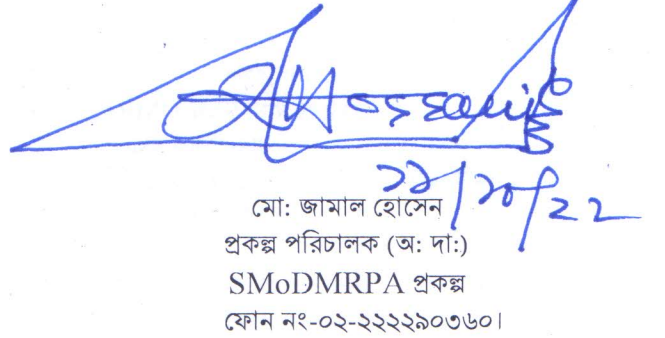 Hossain
১১/১০/২২
মো: জামাল হোসেন
প্রকল্প পরিচালক (অ: দা:)
SMoDMRPA প্রকল্প
ফোন নং-০২-২২২২৯০৩৬০।